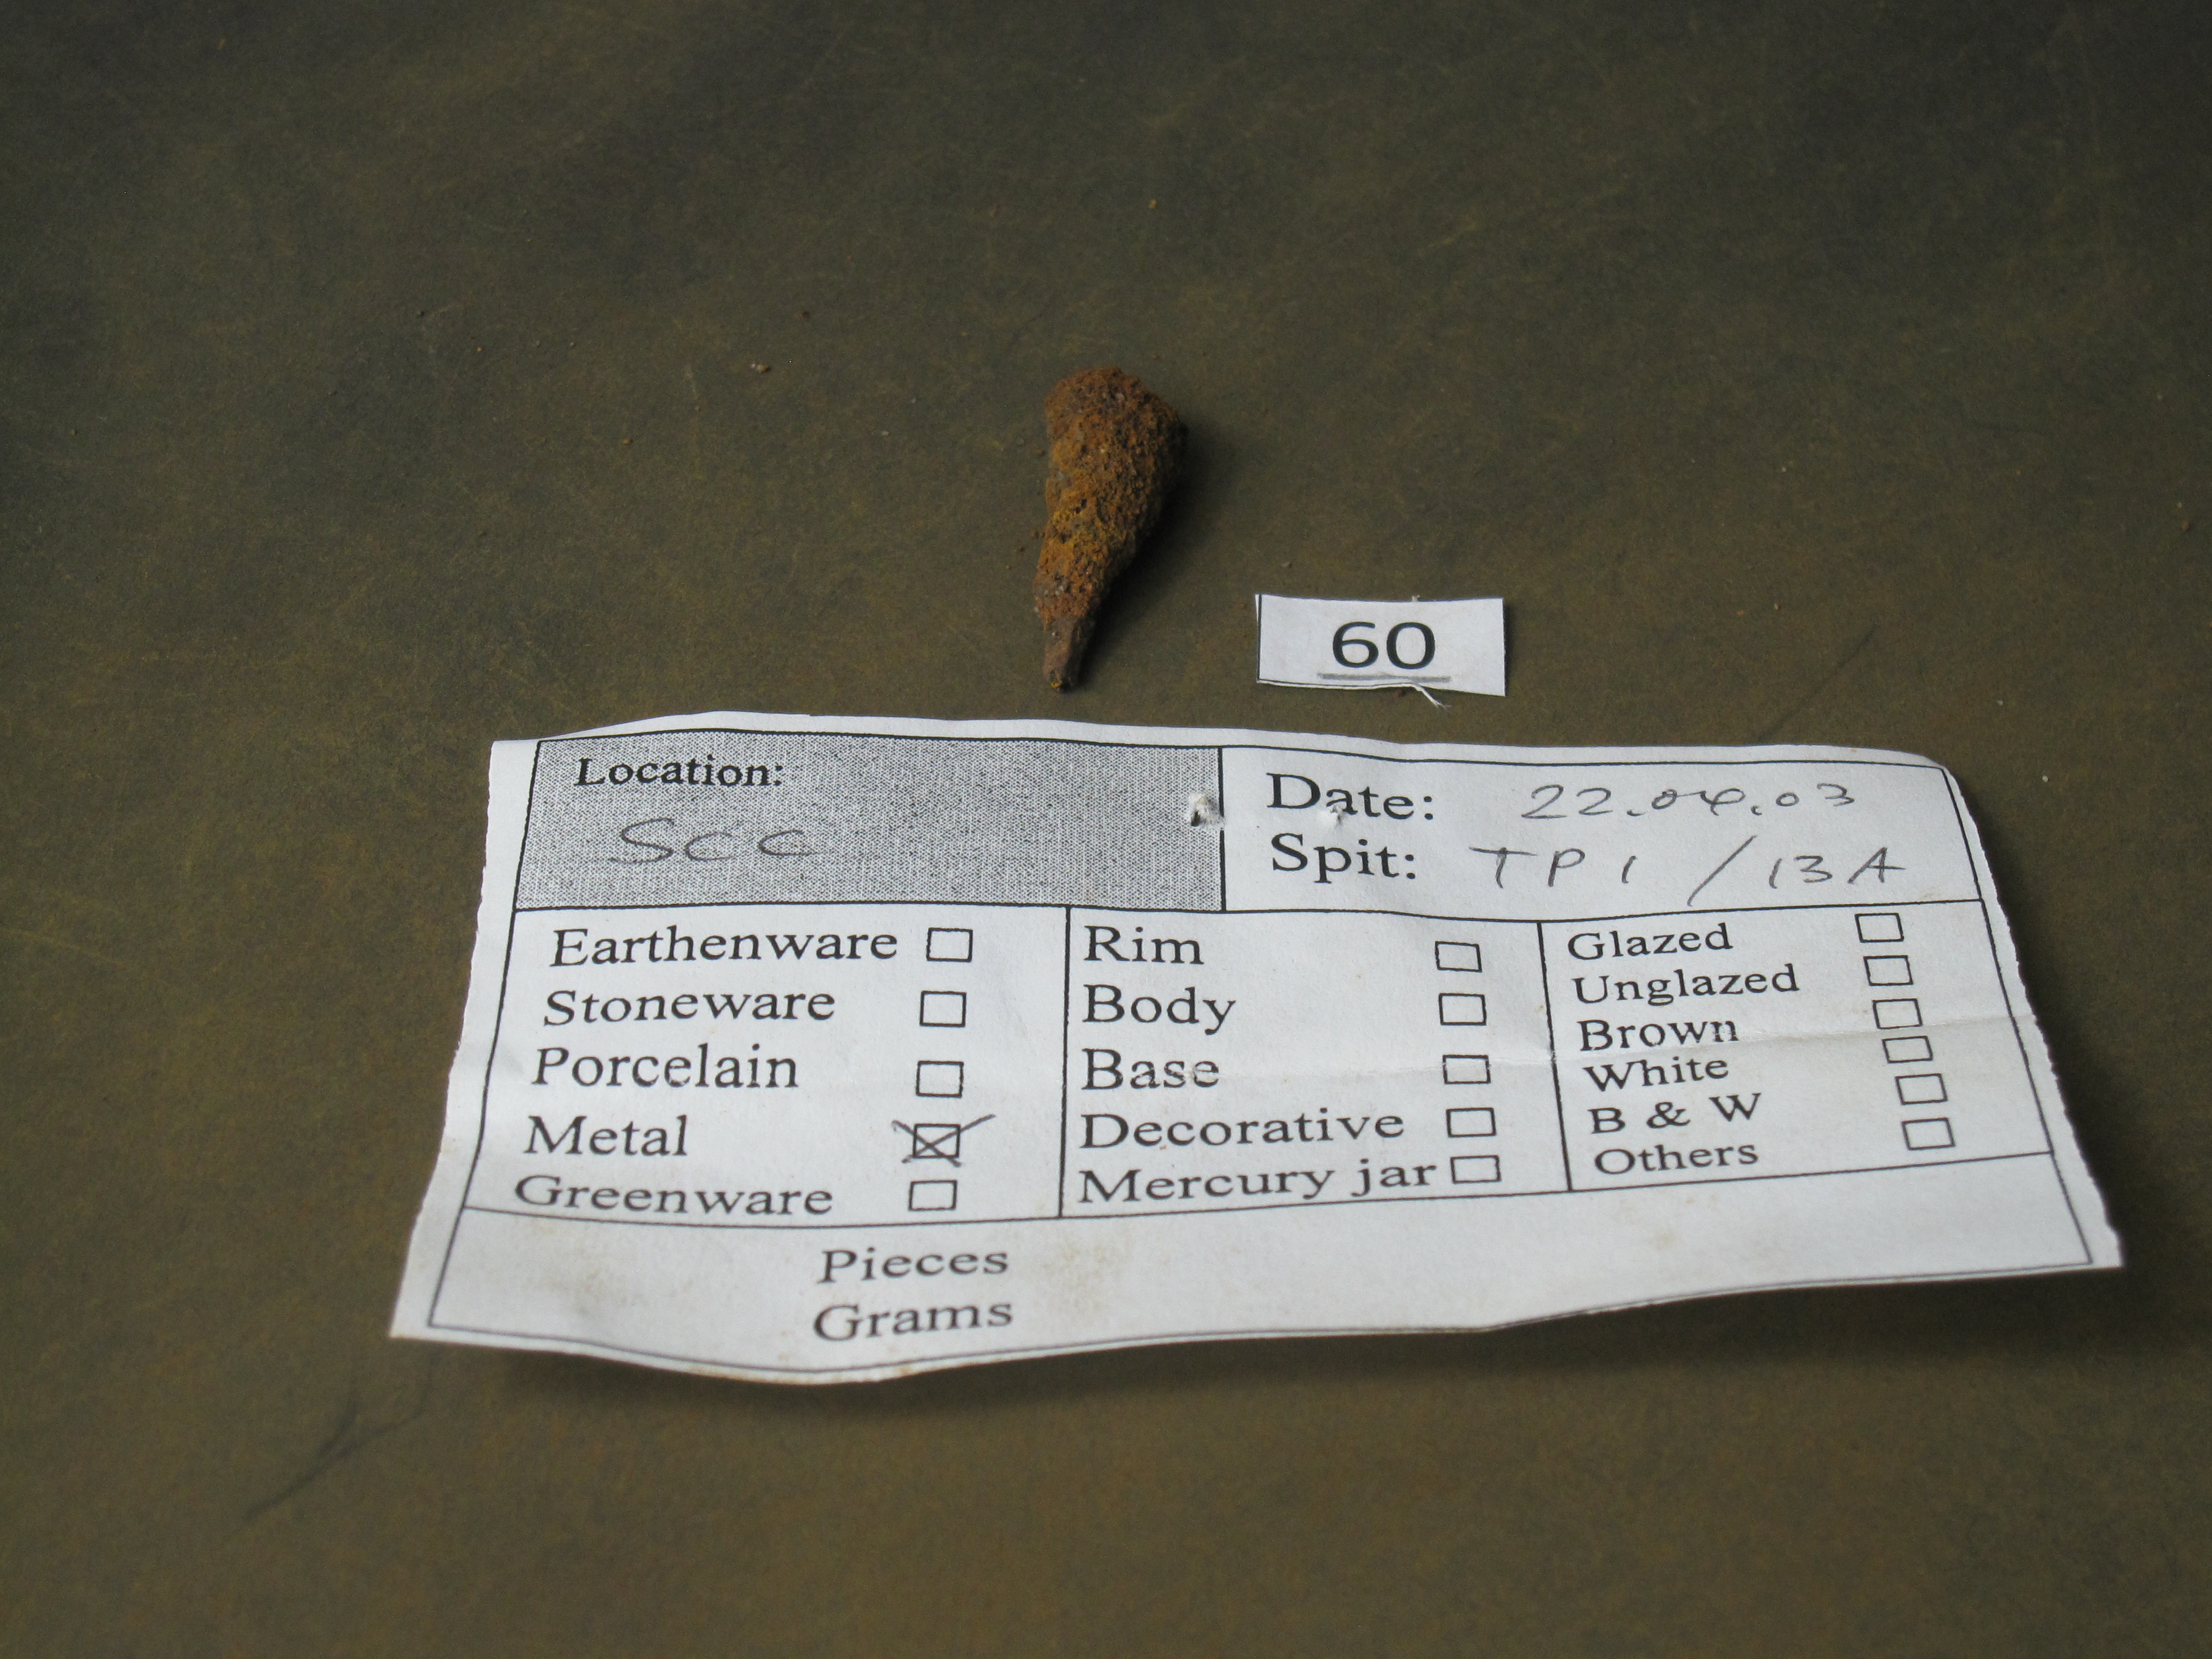 60
Location:
SCC
Date: 22.04.03
Spit: TP1 / 13A
Earthenware
Stoneware
Porcelain
Metal
Greenware
Rim
Body
Base
Decorative
Mercury jar
Glazed
Unglazed
Brown
White
B & W
Others
Pieces
Grams